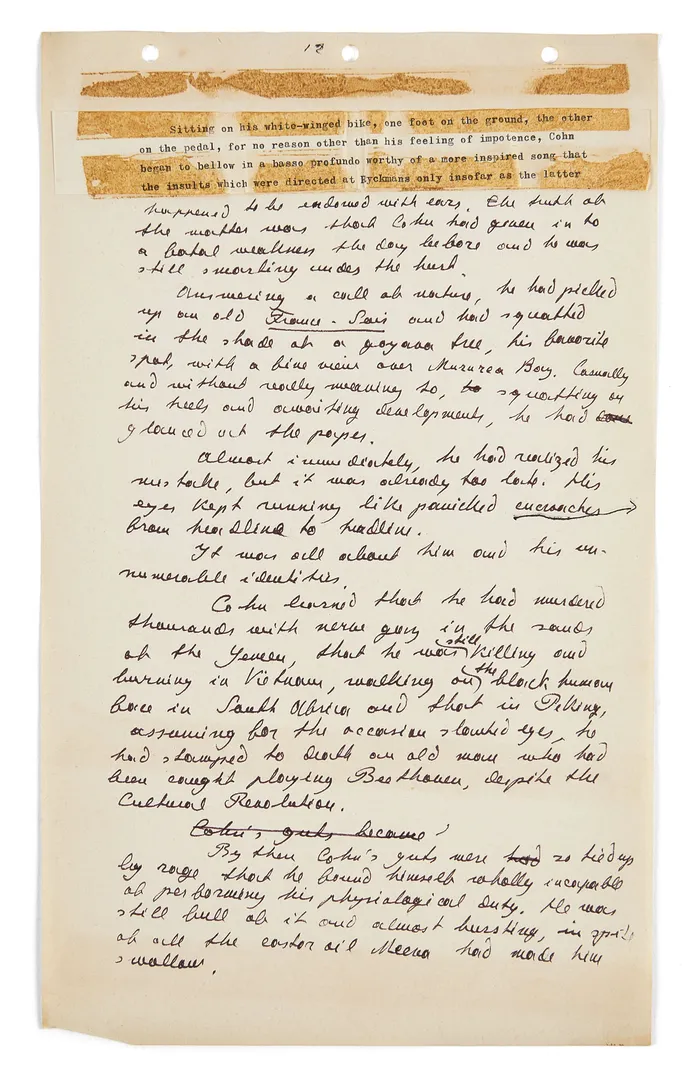 13
Sitting on his white-winged bike, one foot on the ground, the other
on the pedal, for no reason other than his feeling of impotence, Cohn
began to bellow in a basso profundo worthy of a more inspired song that
the insults which were directed at Ryckmans only insofar as the latter
happened to be endowed with ears. The truth of
the matter was that Cohn had given in to
a fatal weakness the day before and he was
still smarting under the hurt.
Answering a call of nature, he had picked
up an old France-Soir and had squatted
in the shade of a goyava tree, his favorite
spot, with a fine view over Mururea Bay. Casually
and without really meaning to, to squatting on
his heels and awaiting developments, he had
glanced at the paper.
Almost immediately, he had realized his
mistake, but it was already too late. His
eyes kept running like panicked cucroaches
from headline to headline.
It was all about him and his in-
numerable identities.
Cohn learned that he had murdered
thousands with nerve gas in the sands
of the Yemen, that he was still killing and
burning in Vietnam, walking on the black human
face in South Africa and that in Peking,
assuming for the occasion slanted eyes, he
had stamped to death an old man who had
been caught playing Beethoven, despite the
Cultural Revolution.
Cohn's guts became
By then Cohn's guts were had so tied up
by rage that he found himself wholly incapable
of performing his physiological duty. He was
still full of it and almost bursting, in spite
of all the castor oil Meeva had made him
swallow.